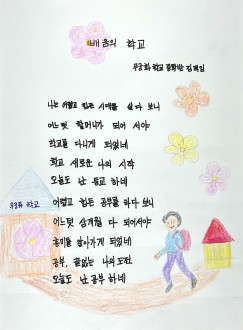 배움의 학교
무궁화 학교 김
나는 어렵고 힘든 시대를 살다 보니
어느덧 할머니가 되어 서야
학교를 다니게 되었네
학교 새로운 나의 시작
오늘도 난 등교 하네
무궁화 학교
어렵고 힘든 공부를 하다 보니
어느덧 삼개월 다 되어서야
흥미를 알아가게 되었네
공부, 끝없는 나의 도전
오늘도 난 공부 하네